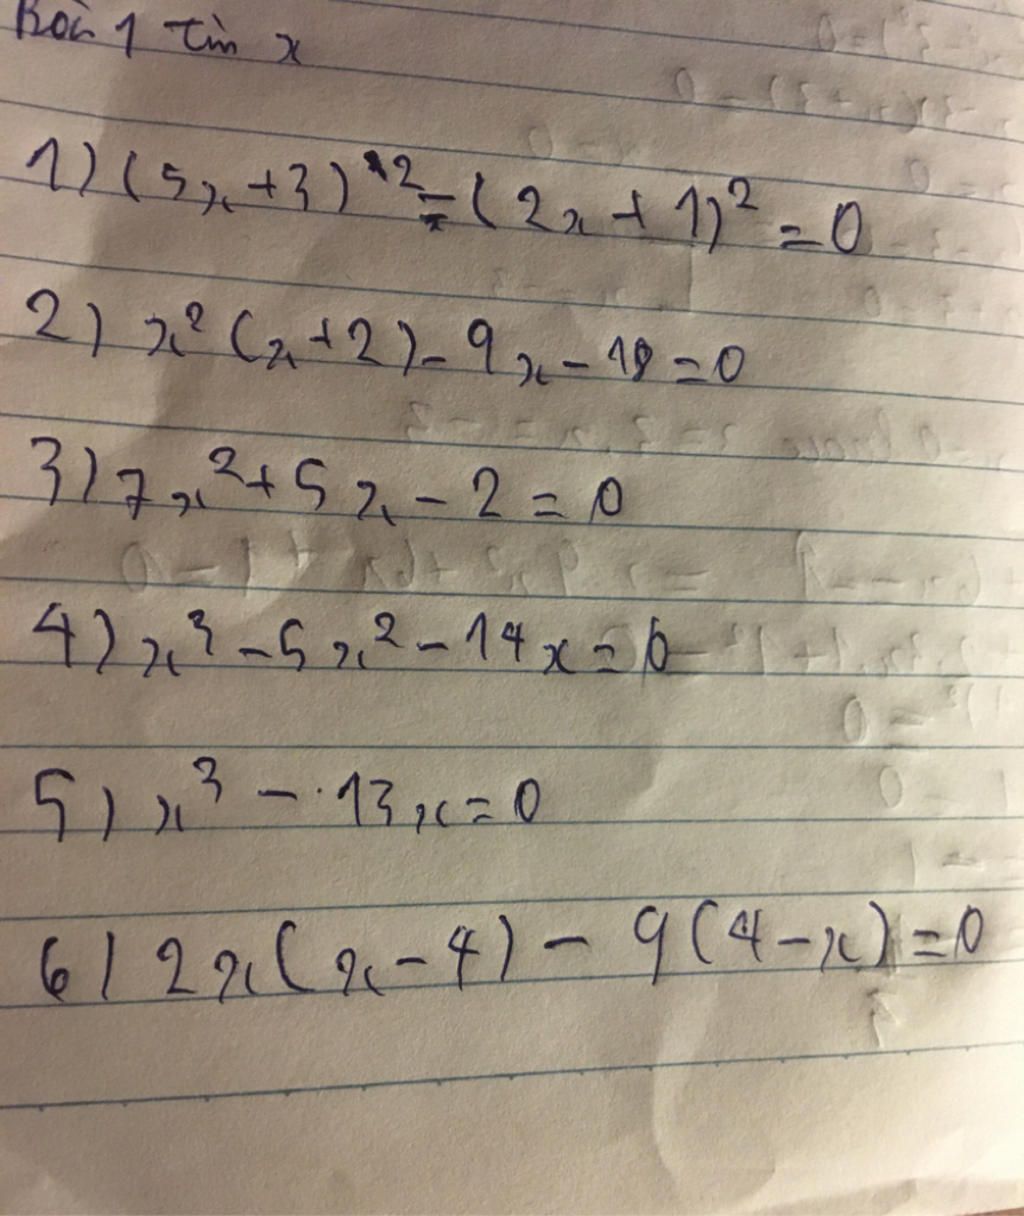 Bài 1 tìm x
1) (5x+3)² - (2x + 1)² = 0
2) x² (x+2) - 9x - 18 = 0
3) 7x² + 5x - 2 = 0
4) x³ - 5x² - 14x = 0
5) x³ - 13x = 0
6) 2x(x-4) - 9(4-x) = 0